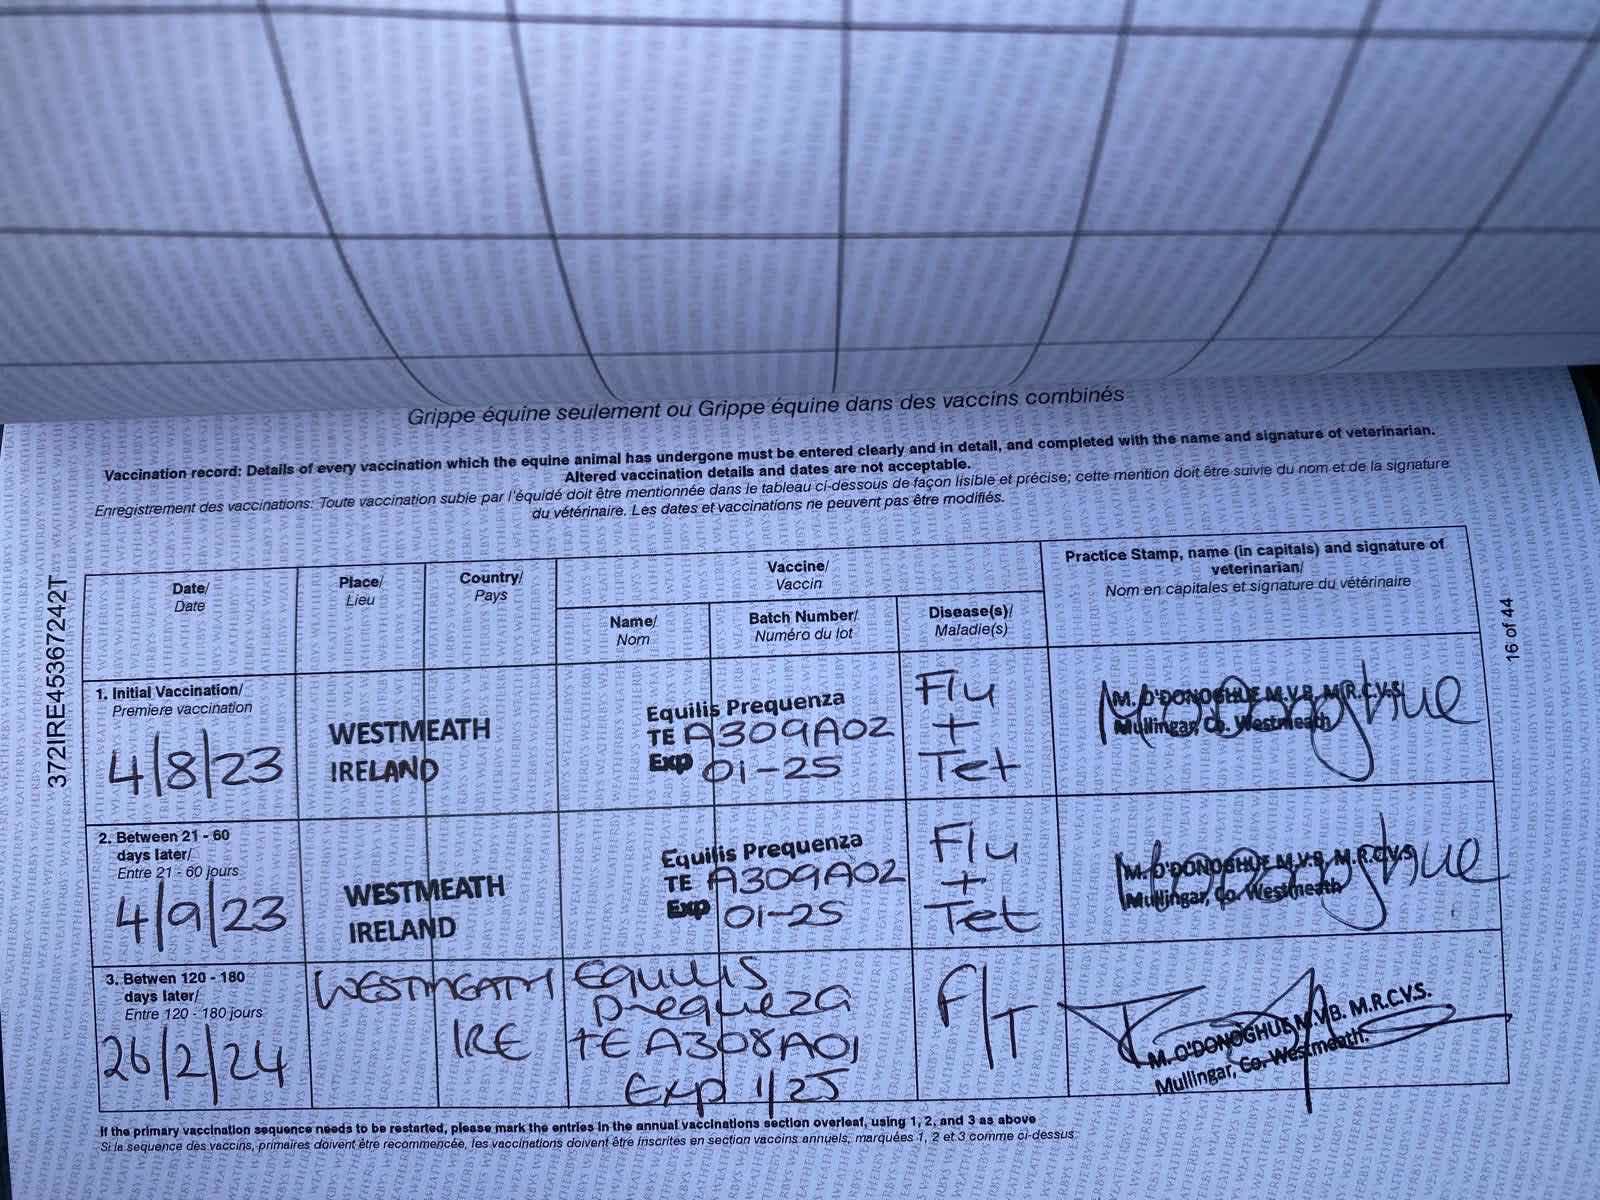 Grippe équine seulement ou Grippe équine dans des vaccins combinés
Vaccination record: Details of every vaccination which the equine animal has undergone must be entered clearly and in detail, and completed with the name and signature of veterinarian.
Altered vaccination details and dates are not acceptable.
Enregistrement des vaccinations: Toute vaccination subie par l'équidé doit être mentionnée dans le tableau ci-dessous de façon lisible et précise; cette mention doit être suivie du nom et de la signature
du vétérinaire. Les dates et vaccinations ne peuvent pas être modifiés.
372IRE45367242T
16 of 44
Date/
Date
Place/
Lieu
Country/
Pays
Vaccine/
Vaccin
Name/
Nom
Batch Number/
Numéro du lot
Disease(s)/
Maladie(s)
Practice Stamp, name (in capitals) and signature of
veterinarian/
Nom en capitales et signature du vétérinaire
1. Initial Vaccination/
Premiere vaccination
4/8/23
WESTMEATH
IRELAND
Equilis Prequenza
TE A309A02
Exp 01-25
Flu
+
Tet
M. O'DONOGHUE M.V.B. M.R.C.V.S.
Mullingar, Co. Westmeath
2. Between 21 - 60
days later/
Entre 21 - 60 jours
4/9/23
WESTMEATH
IRELAND
Equilis Prequenza
TE A309A02
Exp 01-25
Flu
+
Tet
M. O'DONOGHUE M.V.B. M.R.C.V.S
Mullingar, Co. Westmeath
3. Betwen 120 - 180
days later/
Entre 120 - 180 jours
26/2/24
WESTMEATH
IRE
Equilis
Prequeza
tE A308A01
Exp 1/25
F/T
M. O'DONOGHUE M.V.B. M.R.C.V.S.
Mullingar, Co. Westmeath.
If the primary vaccination sequence needs to be restarted, please mark the entries in the annual vaccinations section overleaf, using 1, 2, and 3 as above
Si la sequence des vaccins, primaires doivent être recommencée, les vaccinations doivent être inscrites en section vaccins annuels, marquées 1, 2 et 3 comme ci-dessus